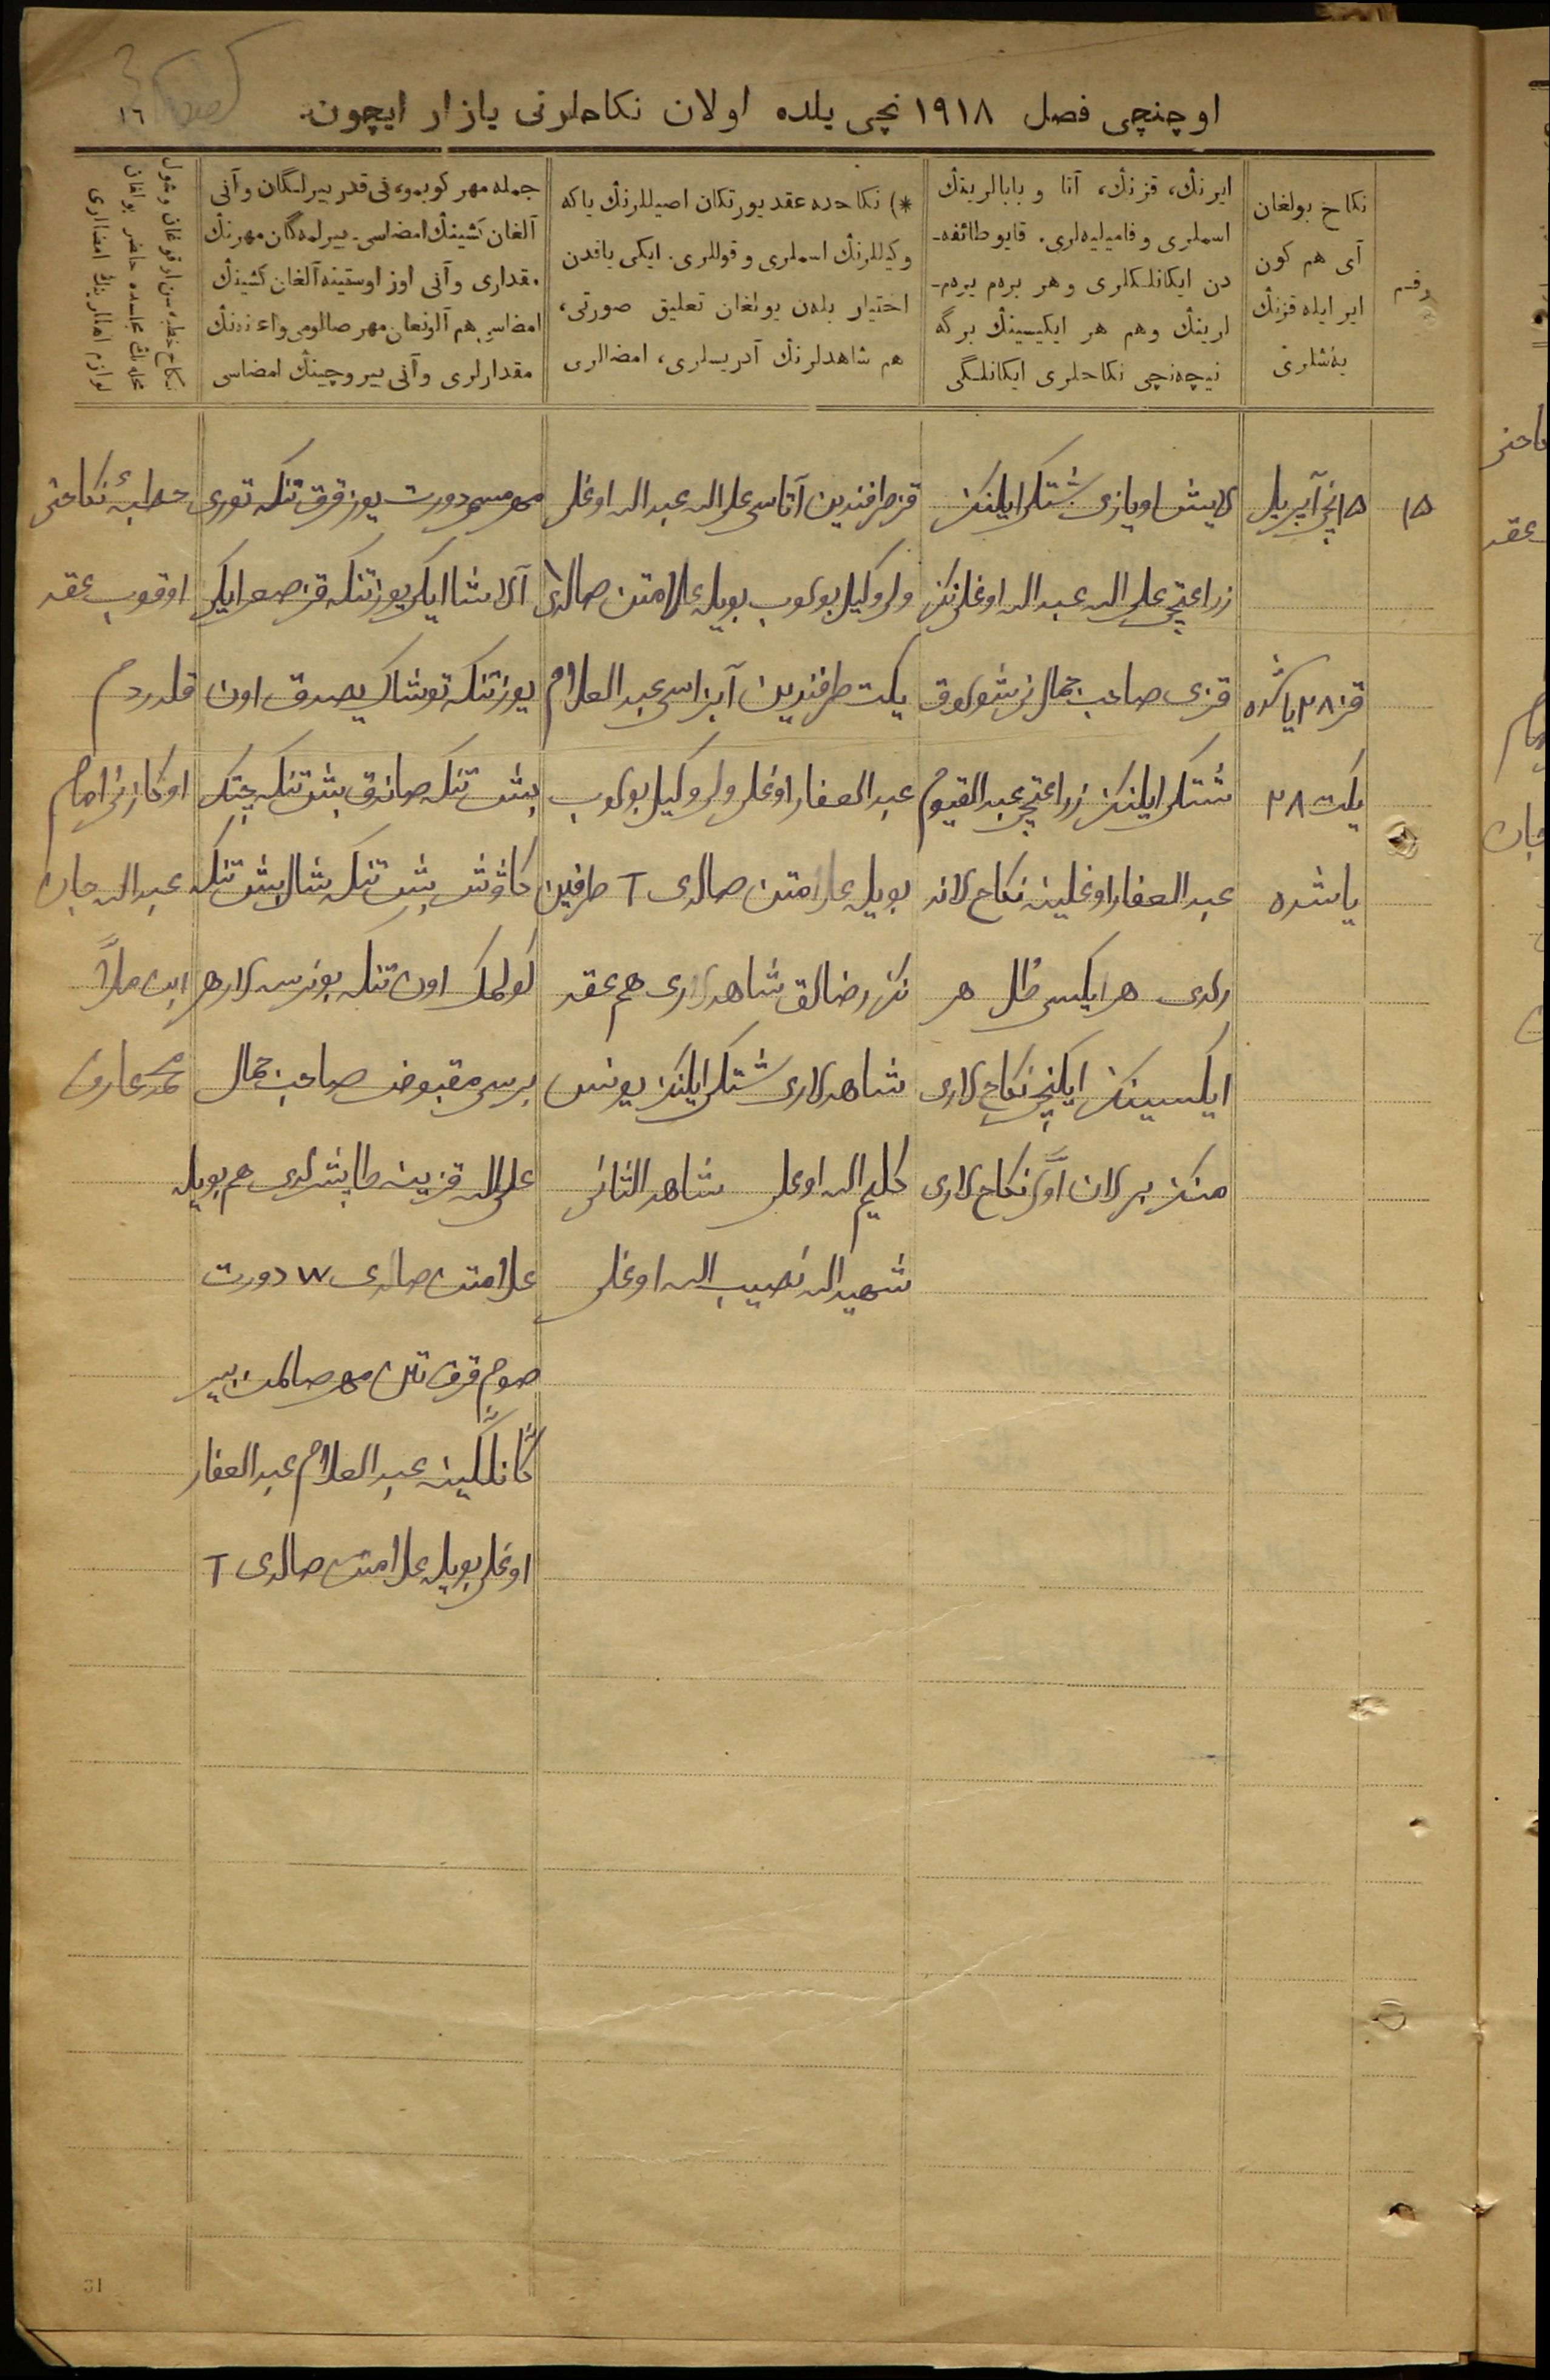 ١٦
اوچنچی فصل ١٩١٨ نچی یلده اولان نکاحلرنی یازار ایچون.
رقم
نکاح بولغان
آی هم کون
ایر ایله قزنڭ
یەشلری
ایرنڭ، قزنڭ، آتا و بابالرینڭ
اسملری و فامیلیەلری. قایو طائفه‌-
دن ایکانلکلری و هر برەم یرەم-
لرینڭ وهم هر ایکیسینڭ برگه
نیچەنچی نکاحلری ایکانلگی
*) نکاحده عقد یورتکان اصیللرنڭ یاکه
وکیللرنڭ اسملری و قوللری. ایکی یاقدن
اختیار بلەن بولغان تعلیق صورتی،
هم شاهدلرنڭ آدریسلری، امضالری
جمله مهر کوبمو، نی قدر بیرلگان وآنی
آلغان کشینڭ امضاسی. بیرلمەگان مهرنڭ
مقداری وآنی اوز اوستینه آلغان کشینڭ
امضاسی هم آلونعان مهر صالومی واعانەنڭ
مقدارلری وآنی بیروچینڭ امضاسی
نکاح خطبه‌سن اوقوغان وشول
مجلسده حاضر بولغان
لوازم امضالری
١٥
١٥نچی آپریل
قز ٢٨ یاشده
یکت ٢٨
یاشده
لایش اویازی شتکی ایلننڭ
زراعتچی علی الله عبد الله اوغلیننڭ
قزی صاحب جمالنی شولوق
شتکی ایلننڭ زراعتچی عبد القیوم
عبد الغفار اوغلینه نکاح لاند
رلدی هر ایکسی طل هر
ایکسیننڭ ایکنچی نکاح لاری
مننڭ برلان اوّل نکاح لاری
قز طرفندین آتاسی علی الله عبد الله اوغلی
ولی وکیل بولوب بویله علامتن صالدی
یکت طرفندین آبزاسی عبد العلام
عبد الغفار اوغلی ولی وکیل بولوب
بویله علامتن صالدی T طرفین
ننڭ رضالق شاهدلاری هم عقد
شاهدلاری شتکی ایلننڭ یونس
کلیم الله اوغلی شاهد الثانی
شهید الله نصیب الله اوغلی
مهر مسمی دورت یوز قرق تنکه توری
آلاشا ایکی یوز تنکه قز صعر ایکی
یوز تنکه توشاك یصدق اون
بش تنکه صاندق بش تنکه چتك
کاوش بش تنکه شال بش تنکه
کولمك اون تنکه بونرسه لار هر
برسی مقبوض صاحب جمال
علی الله قزینه طابشرلدی هم بویله
علامتن صالدی W دورت
صوم قرق تین مهر صالمن بیر
کانلگینه عبد العلام عبد الغفار
اوغلی بویله علامتن صالدی T
خطبهٔ نکاحنی
اوقوب عقد
قلدردم
اوکازنی امام
عبد الله جان
ابن ملاّ
محمد عارف